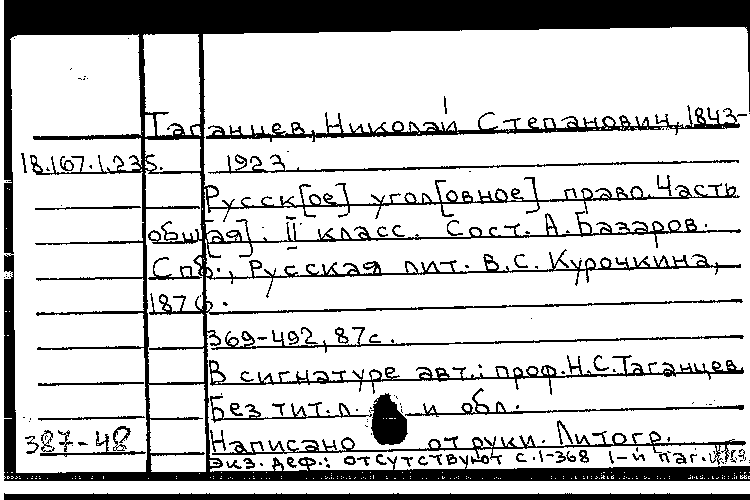 Таганцев, Николай Степанович, 1843-
18.167.1.235. 1923.
Русск[ое] угол[овное] право. Часть
общ[ая]: II класс. Сост. А. Базаров.
Спб., Русская лит. В.С. Курочкина,
1876.
369-492, 87с.
В сигнатуре авт.: проф. Н.С. Таганцев
Без тит. л. и обл.
387-48 Написано от руки. Литогр.
Экз. деф.: отсутствуют с. 1-368 1-й паг.